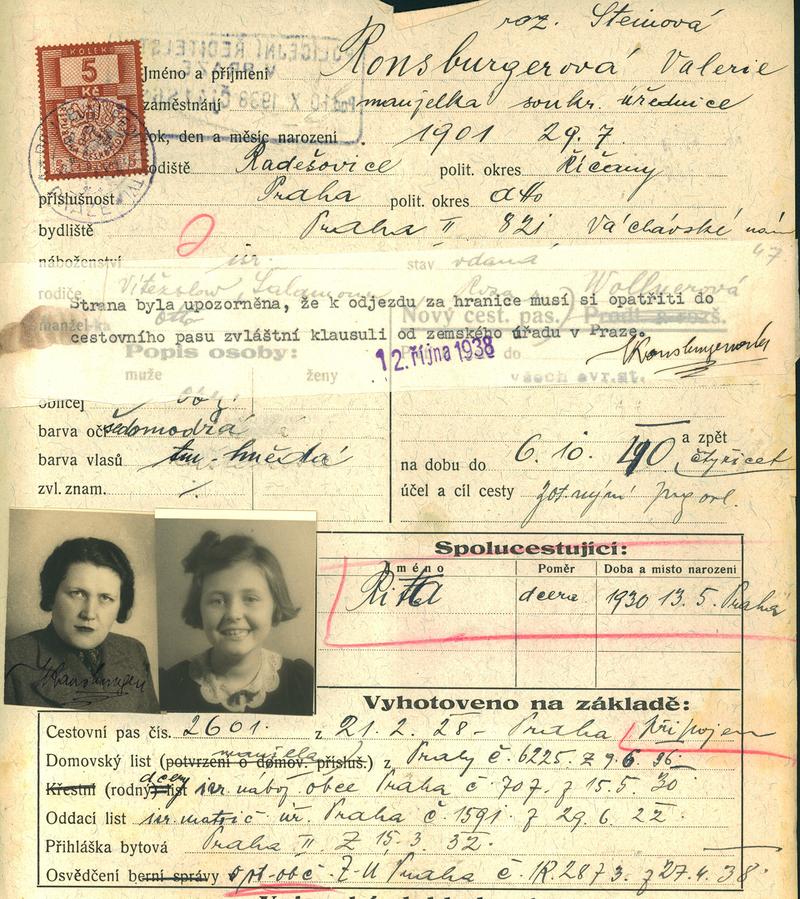 roz. Steinová
KOLEK
5
Kč
Jméno a přijmení Ronsburgerová Valerie
zaměstnání manželka soukr. úřednice
rok, den a měsíc narození 1901 29. 7.
rodiště Radešovice polit. okres Říčany
příslušnost Praha polit. okres dtto
bydliště Praha II 821 Václavské nám
47
náboženství isr. stav vdaná
rodiče Vítězslav Salamoun Wollnerová
Strana byla upozorněna, že k odjezdu za hranice musí si opatřiti do
manžel-ka Otto Nový cest. pas. Prodl. rozš.
cestovního pasu zvláštní klausuli od zemského úřadu v Praze.
Popis osoby: 12. října 1938 do
muže ženy všech evr. st.
obličej obl.
barva očí šedomodrá
barva vlasů tm. hnědá
na dobu do 6. 10. 1940 čtyřicet a zpět
zvl. znam.
účel a cíl cesty
Spolucestující:
Jméno Poměr Doba a místo narození
Ritta dcera 1930 13. 5. Praha
Vyhotoveno na základě:
Cestovní pas čís. 2601. z 21. 2. 28 - Praha připojen
Domovský list (potvrzení o domov. přísluš.) manžela z Prahy č. 6225. z 9. 6. 36
Křestní (rodný) list dcery isr. nábož. obce Praha č. 707. z 15. 5. 30
Oddací list isr. matrič. úř. Praha č. 1591 z 29. 6. 22
Přihláška bytová Praha II Z 15. 3. 32.
Osvědčení berní správy spt. obč. Z-U Praha č. 1R. 2873. z 27. 4. 38